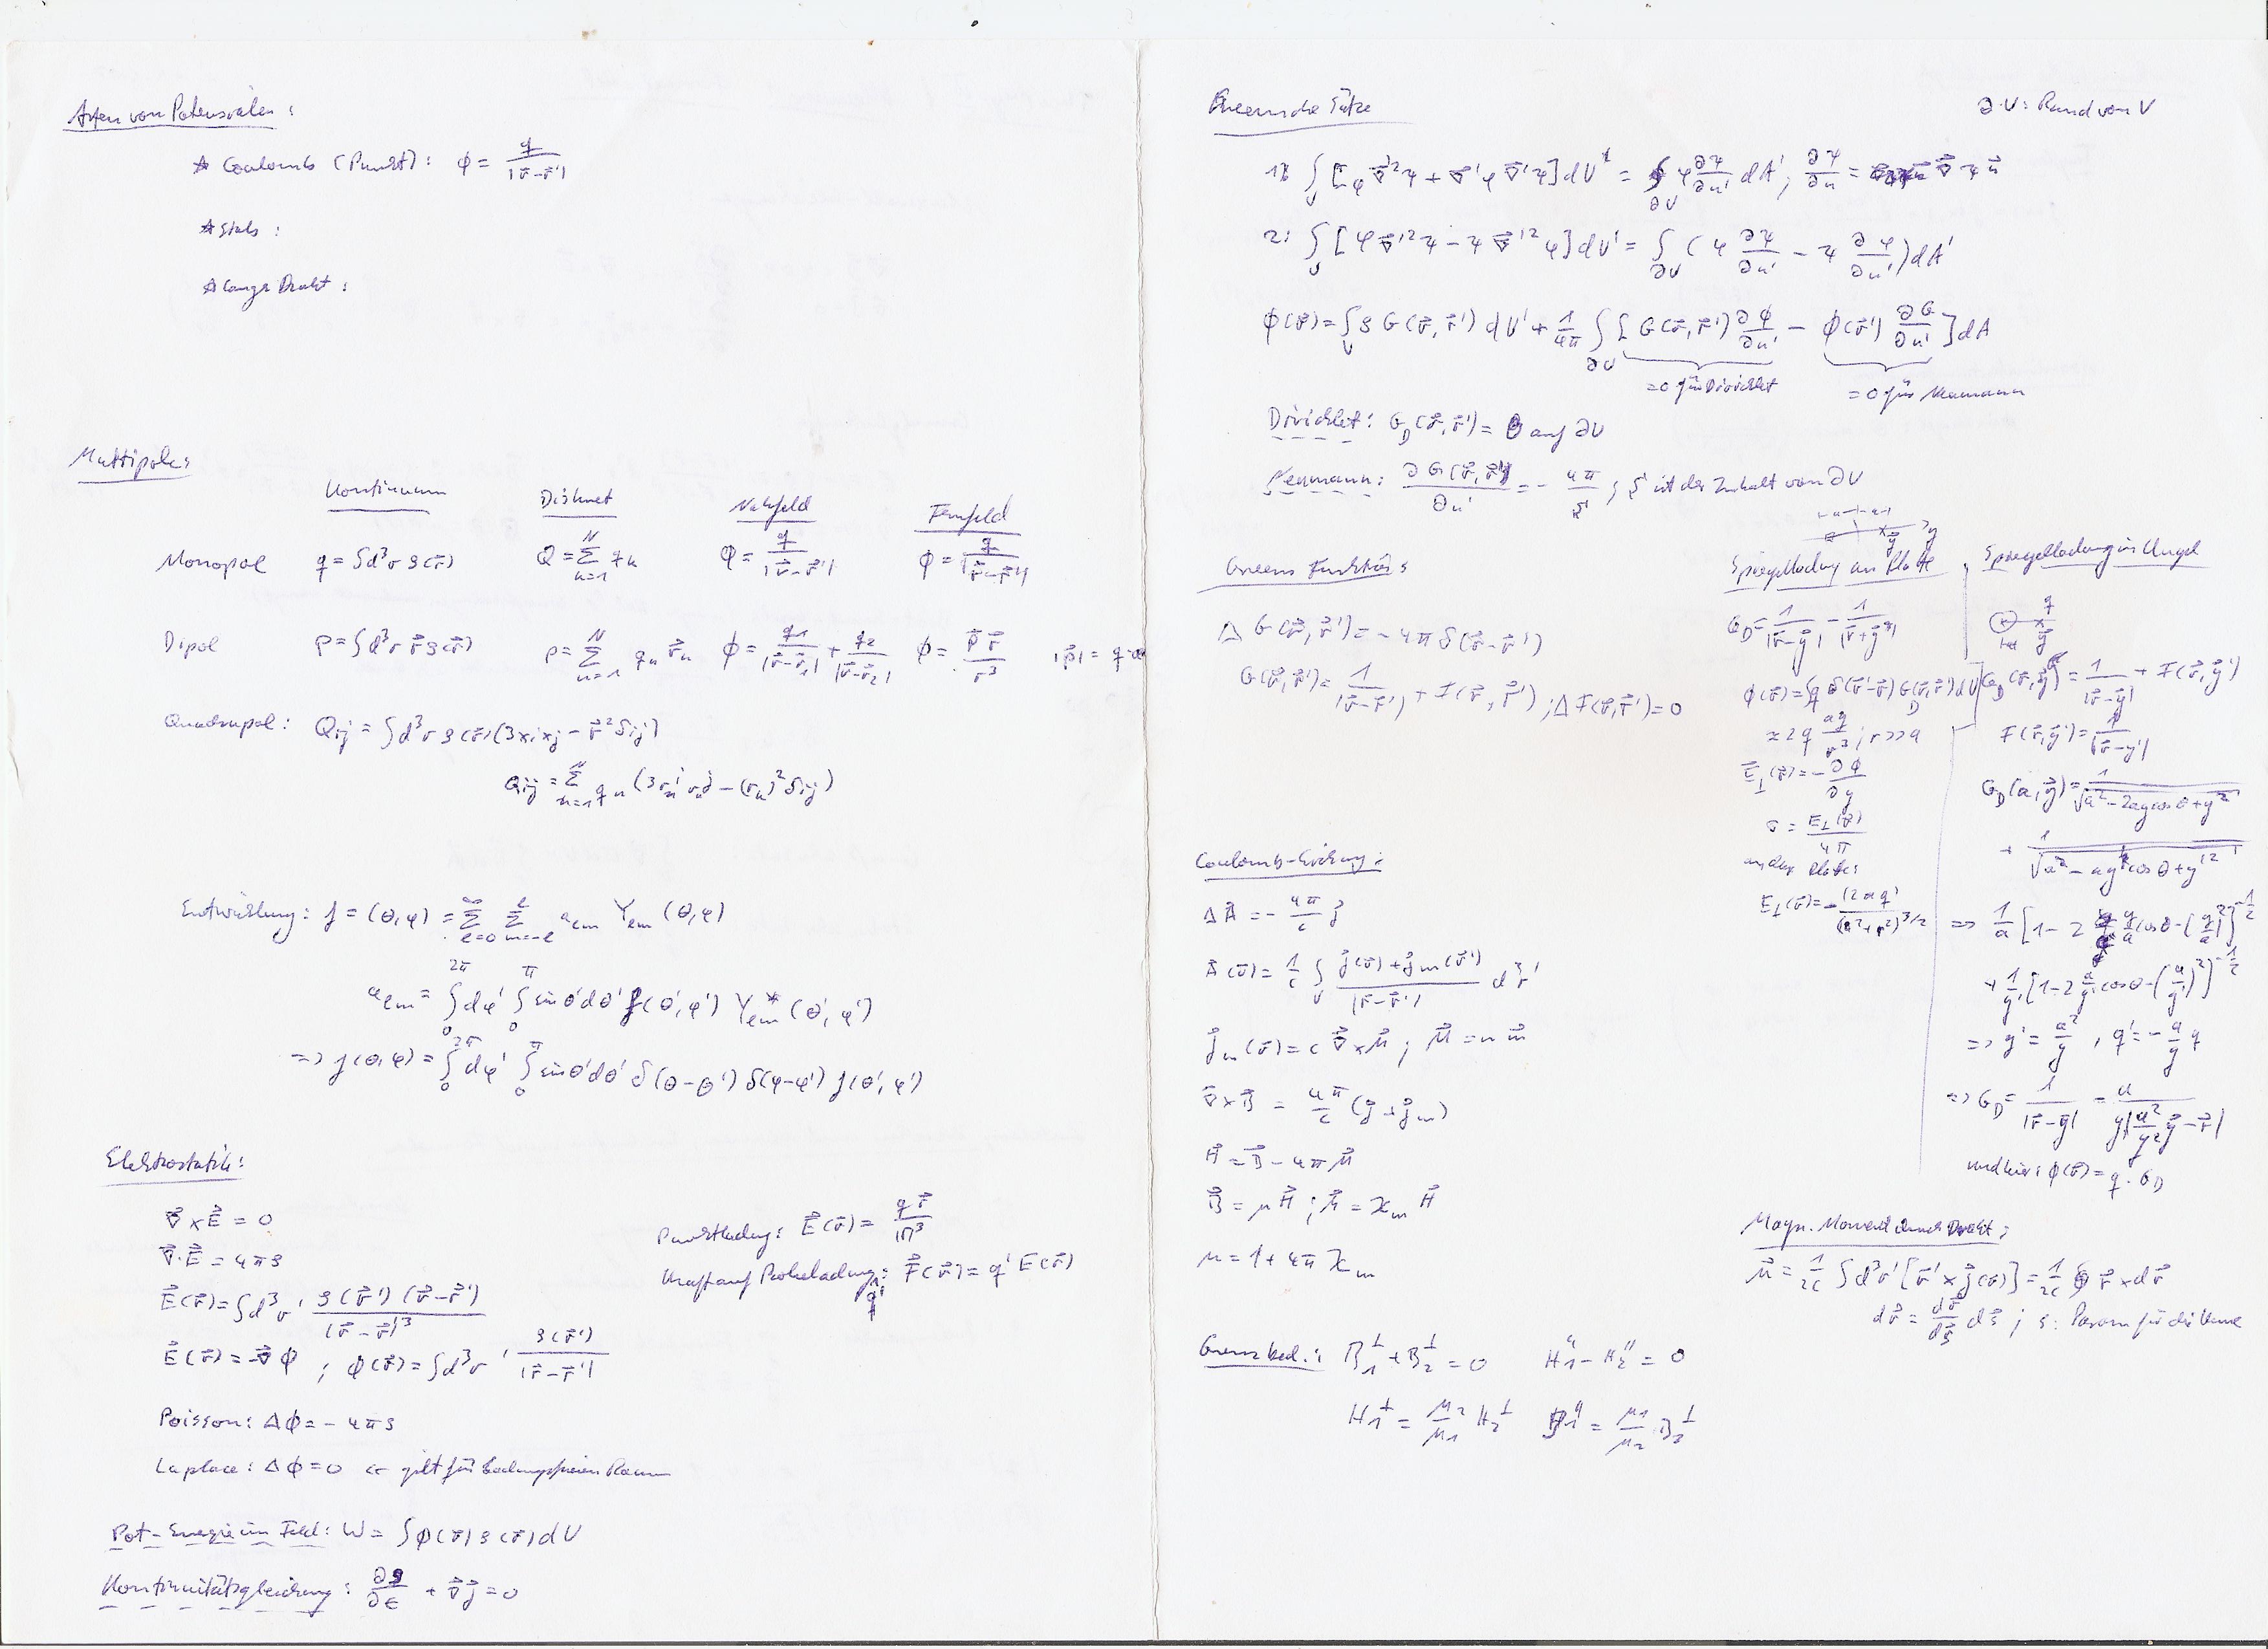 Arten von Potenzialen:
* Coulomb (Punkt): ϕ = q / |r⃗-r⃗'|
* Stab:
* langer Draht:
Multipole:
Kontinuum Diskret Nahfeld Fernfeld
Monopol q = ∫d³r ρ(r⃗) Q = Σ_{n=1}^{N} q_n ϕ = q / |r⃗-r⃗'| ϕ = q / |r⃗-r⃗'|
Dipol p = ∫d³r r⃗ρ(r⃗) p = Σ_{n=1}^{N} q_n r⃗_n ϕ = q_1 / |r⃗-r⃗_1| + q_2 / |r⃗-r⃗_2| ϕ = p⃗ r⃗ / r³ |p⃗| = q·a
Quadrupol: Q_ij = ∫d³r ρ(r⃗)(3x_i x_j - r⃗² δ_ij)
Q_ij = Σ_{n=1}^{N} q_n (3r_n^i r_n^j - (r_n)² δ_ij)
Entwicklung: f = (θ,φ) = Σ_{l=0}^{∞} Σ_{m=-l}^{l} a_lm Y_lm (θ,φ)
a_lm = ∫_0^{2π} dφ' ∫_0^π sinθ'dθ' f(θ',φ') Y*_lm (θ',φ')
=> f(θ,φ) = ∫_0^{2π} dφ' ∫_0^π sinθ'dθ' δ(θ-θ') δ(φ-φ') f(θ',φ')
Elektrostatik:
∇⃗ × E⃗ = 0
∇⃗·E⃗ = 4πρ
E⃗(r⃗) = ∫d³r' ρ(r⃗') (r⃗-r⃗') / |r⃗-r⃗'|³
E⃗(r⃗) = -∇⃗ϕ ; ϕ(r⃗) = ∫d³r' ρ(r⃗') / |r⃗-r⃗'|
Punktladung: E⃗(r⃗) = q r⃗ / |r⃗|³
Kraft auf Probeladung q': F⃗(r⃗) = q' E(r⃗)
Poisson: Δϕ = - 4πρ
Laplace: Δϕ = 0 << gilt für ladungsfreien Raum
Pot-Energie im Feld: W = ∫ϕ(r⃗) ρ(r⃗) dV
Kontinuitätsgleichung: ∂ρ/∂t + ∇⃗j⃗ = 0
Greensche Sätze ∂V: Rand von V
1: ∫_V [φ ∇⃗'²ψ + ∇⃗'φ ∇⃗'ψ] dV' = ∮_∂V φ ∂ψ/∂n' dA' ; ∂ψ/∂n = ∇⃗ψ n⃗
2: ∫_V [φ∇⃗'²ψ - ψ∇⃗'²φ] dV' = ∫_∂V (φ ∂ψ/∂n' - ψ ∂φ/∂n') dA'
ϕ(r⃗) = ∫_V ρ G(r⃗,r⃗') dV' + 1/4π ∫_∂V [G(r⃗,r⃗') ∂ϕ/∂n' - ϕ(r⃗') ∂G/∂n'] dA
=0 für Dirichlet =0 für Neumann
Dirichlet: G_D(r⃗,r⃗') = 0 auf ∂V
Neumann: ∂G(r⃗,r⃗')/∂n' = - 4π/S ; S ist der Inhalt von ∂V
Greens Funktion:
ΔG(r⃗,r⃗') = -4πδ(r⃗-r⃗')
G(r⃗,r⃗') = 1/|r⃗-r⃗'| + F(r⃗,r⃗') ; ΔF(r⃗,r⃗') = 0
Spiegelladung an Platte
G_D = 1/|r⃗-y⃗| - 1/|r⃗+y⃗|
ϕ(r⃗) = ∫q δ(r⃗'-r⃗) G_D(r⃗,r⃗') dV
≈ 2q ay/r³ ; r>>a
E⃗_⊥(r⃗) = - ∂ϕ/∂y
σ = E_⊥(r⃗)/4π
an der Platte:
E_⊥(r⃗) = - (2aq) / (a²+r²)^{3/2}
Spiegelladung in Kugel
G_D(r⃗,y⃗) = 1/|r⃗-y⃗| + F(r⃗,y⃗')
F(r⃗,y⃗') = 1/|r⃗-y'|
G_D(a,y⃗) = 1/√(a²-2ay cosθ+y²)
+ 1/√(a²-ay'cosθ+y'²)
=> 1/a [1-2 y/a cosθ-(y/a)²]^{-1/2}
+ 1/y' [1-2 a/y' cosθ-(a/y')²]^{-1/2}
=> y' = a²/y , q' = - a/y q
=> G_D = 1/|r⃗-y⃗| - a / y|a²/y² y⃗-r⃗|
und hier: ϕ(r⃗) = q·G_D
Coulomb-Eichung:
ΔA⃗ = - 4π/c j⃗
A⃗(r⃗) = 1/c ∫_V j⃗(r⃗)+j⃗_m(r⃗') / |r⃗-r⃗'| d³r'
j⃗_m(r⃗) = c ∇⃗×M⃗ ; M⃗ = n m⃗
∇⃗×B⃗ = 4π/c (j⃗+j⃗_m)
H⃗ = B⃗ - 4πM⃗
B⃗ = μH⃗ ; M⃗ = χ_m H⃗
μ = 1+4π χ_m
Magn. Moment durch Draht:
m⃗ = 1/2c ∫d³r' [r⃗' × j⃗(r⃗)] = 1/2c ∮ r⃗ × dr⃗
dr⃗ = dr⃗/ds ds ; s: Param für die Kurve
Grenzbed.: B_1^⊥ + B_2^⊥ = 0 H_1^∥ - H_2^∥ = 0
H_1^⊥ = μ_2/μ_1 H_2^⊥ B_1^∥ = μ_1/μ_2 B_2^⊥